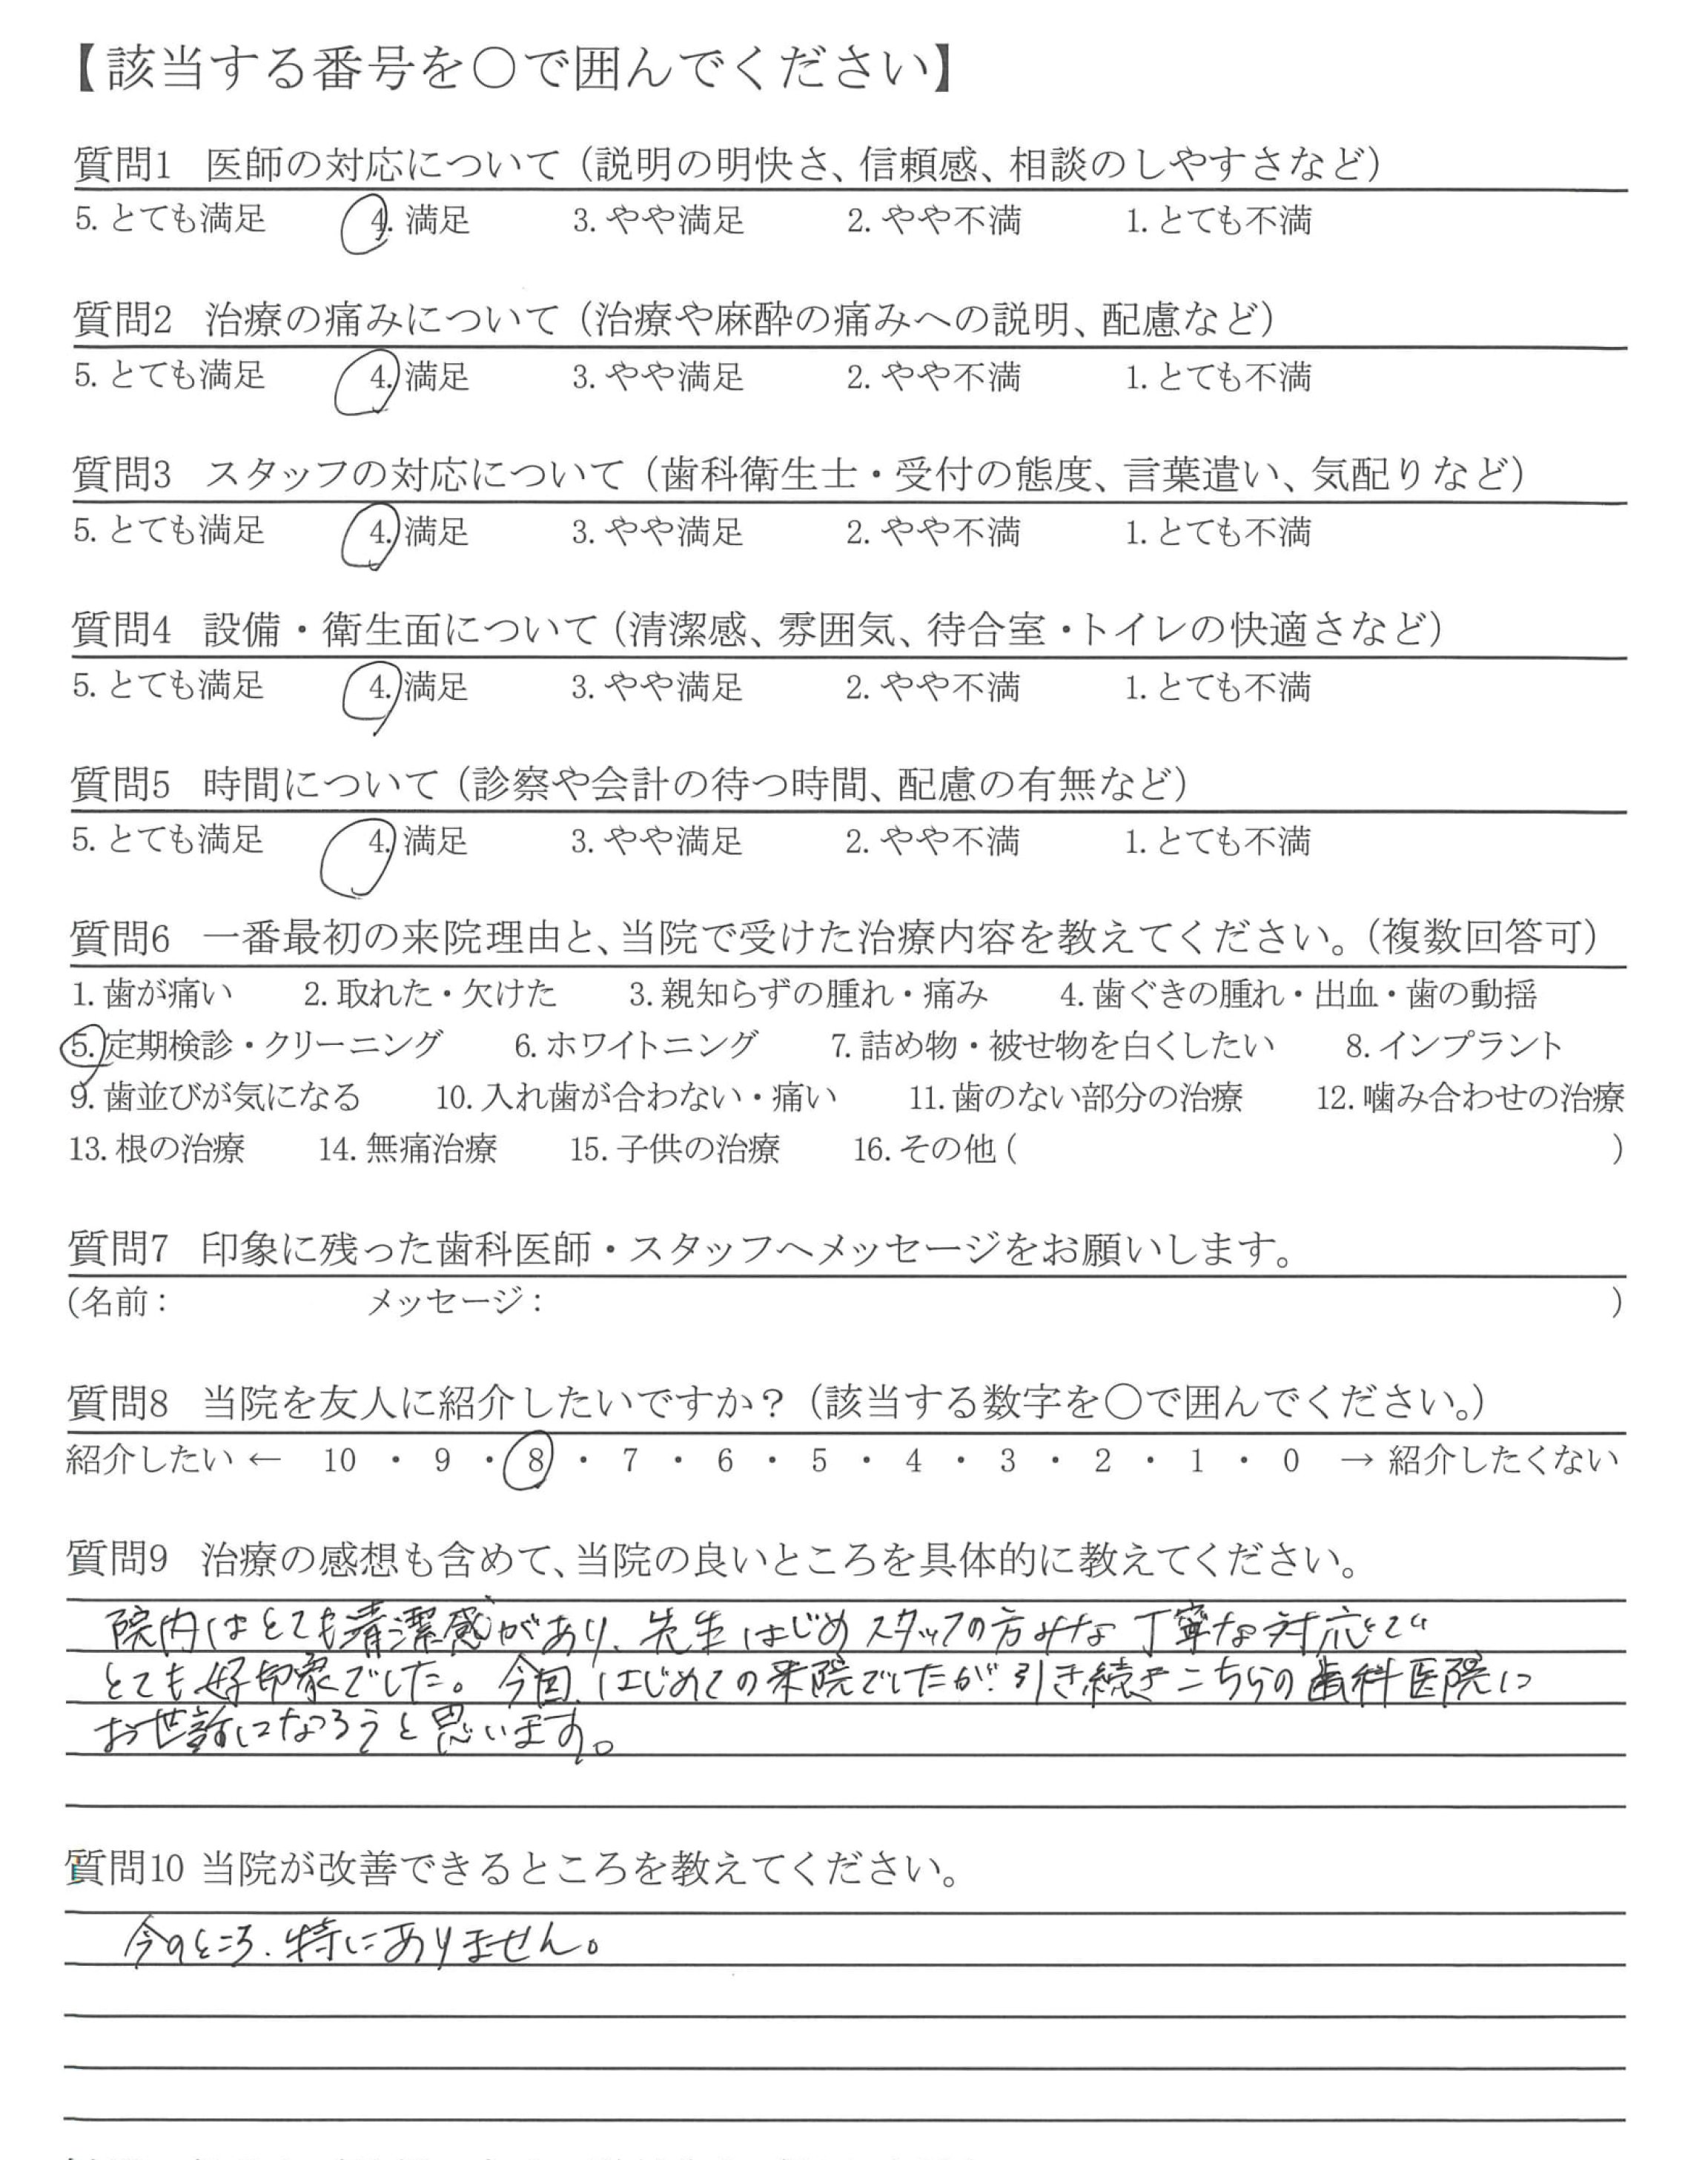 【該当する番号を○で囲んでください】
質問1 医師の対応について（説明の明快さ、信頼感、相談のしやすさなど）
5. とても満足 4. 満足 3. やや満足 2. やや不満 1. とても不満
質問2 治療の痛みについて（治療や麻酔の痛みへの説明、配慮など）
5. とても満足 4. 満足 3. やや満足 2. やや不満 1. とても不満
質問3 スタッフの対応について（歯科衛生士・受付の態度、言葉遣い、気配りなど）
5. とても満足 4. 満足 3. やや満足 2. やや不満 1. とても不満
質問4 設備・衛生面について（清潔感、雰囲気、待合室・トイレの快適さなど）
5. とても満足 4. 満足 3. やや満足 2. やや不満 1. とても不満
質問5 時間について（診察や会計の待つ時間、配慮の有無など）
5. とても満足 4. 満足 3. やや満足 2. やや不満 1. とても不満
質問6 一番最初の来院理由と、当院で受けた治療内容を教えてください。（複数回答可）
1. 歯が痛い 2. 取れた・欠けた 3. 親知らずの腫れ・痛み 4. 歯ぐきの腫れ・出血・歯の動揺
5. 定期検診・クリーニング 6. ホワイトニング 7. 詰め物・被せ物を白くしたい 8. インプラント
9. 歯並びが気になる 10. 入れ歯が合わない・痛い 11. 歯のない部分の治療 12. 噛み合わせの治療
13. 根の治療 14. 無痛治療 15. 子供の治療 16. その他 ( )
質問7 印象に残った歯科医師・スタッフへメッセージをお願いします。
(名前： メッセージ： )
質問8 当院を友人に紹介したいですか？（該当する数字を○で囲んでください。）
紹介したい ← 10 ・ 9 ・ 8 ・ 7 ・ 6 ・ 5 ・ 4 ・ 3 ・ 2 ・ 1 ・ 0 → 紹介したくない
質問9 治療の感想も含めて、当院の良いところを具体的に教えてください。
院内はとても清潔感があり、先生はじめスタッフの方みな丁寧な対応で
とても好印象でした。今回、はじめての来院でしたが、引き続きこちらの歯科医院に
お世話になろうと思います。
質問10 当院が改善できるところを教えてください。
今のところ、特にありません。